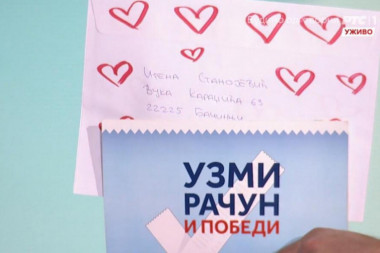 РТС 1
УЖИВО
Ивена Станојевић
Вука Караџића 63
22225 Бачинци
УЗМИ
РАЧУН
И ПОБЕДИ